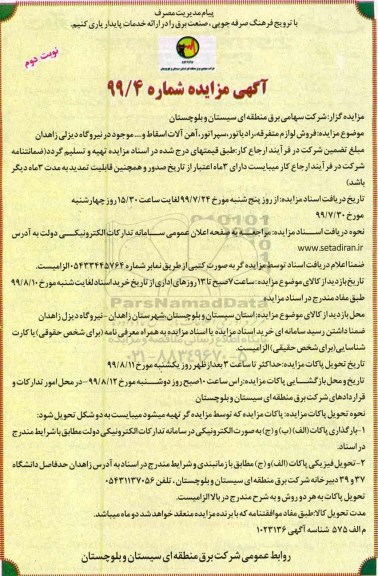 پیام مدیریت مصرف
با ترویج فرهنگ صرفه جویی ، صنعت برق را در ارائه خدمات پایدار یاری کنیم.
نوبت دوم
آگهی مزایده شماره ۹۹/۴
مزایده گزار: شرکت سهامی برق منطقه ای سیستان و بلوچستان
موضوع مزایده: فروش لوازم متفرقه، رادیاتور، سپراتور، آهن آلات اسقاط و... موجود در نیروگاه دیزلی زاهدان
مبلغ تضمین شرکت در فرآیند ارجاع کار: طبق قیمتهای درج شده در اسناد مزایده تهیه و تسلیم گردد (ضمانتنامه
شرکت در فرآیند ارجاع کار میبایست دارای ۳ ماه اعتبار از تاریخ صدور و همچنین قابلیت تمدید به مدت ۳ ماه دیگر
باشد)
تاریخ دریافت اسناد مزایده: از روز پنج شنبه مورخ ۹۹/۷/۲۴ لغایت ساعت ۱۵/۳۰ روز چهارشنبه
مورخ ۹۹/۷/۳۰
نحوه دریافت اسناد مزایده: مراجعه به صفحه اعلان عمومی سامانه تدارکات الکترونیکی دولت به آدرس
www.setadiran.ir
ضمنا اعلام دریافت اسناد توسط مزایده گر به صورت کتبی از طریق نمابر شماره ۰۵۴۳۳۴۴۵۷۶۴ الزامیست.
تاریخ بازدید از کالای موضوع مزایده: ساعت ۷ صبح تا ۱۳ روزهای اداری از تاریخ خرید اسناد لغایت شنبه مورخ ۹۹/۸/۱۰
طبق مفاد مندرج در اسناد مزایده
محل بازدید از کالای موضوع مزایده: استان سیستان و بلوچستان، شهرستان زاهدان - نیروگاه دیزل زاهدان
ضمنا داشتن رسید سامانه ای خرید اسناد مزایده یا اسناد مزایده به همراه معرفی نامه (برای شخص حقوقی) یا کارت
شناسایی (برای شخص حقیقی) الزامیست.
تاریخ تحویل پاکات مزایده: حداکثر تا ساعت ۳ بعد از ظهر روز یکشنبه مورخ ۹۹/۸/۱۱
تاریخ و محل بازگشایی پاکات مزایده: راس ساعت ۱۰ صبح روز دوشنبه مورخ ۹۹/۸/۱۲- در محل امور تدارکات و
قراردادهای شرکت برق منطقه ای سیستان و بلوچستان
نحوه تحویل پاکات مزایده: پاکات مزایده که توسط مزایده گر تهیه میشود میبایست به دو شکل تحویل شود:
۱- بارگذاری پاکات (الف) (ب) و (ج) به صورت الکترونیکی در سامانه تدارکات الکترونیکی دولت مطابق با شرایط مندرج
در اسناد.
۲- تحویل فیزیکی پاکات (الف) و (ج) مطابق با زمانبندی و شرایط مندرج در اسناد به آدرس زاهدان حدفاصل دانشگاه
۳۷ و ۳۹ دبیرخانه شرکت برق منطقه ای سیستان و بلوچستان ، تلفن ۰۵۴۳۱۱۳۷۰۵۶
تحویل پاکات به هر دو روش و به شرح مندرج در بالا الزامیست.
مدت تحویل کالا: طبق مفاد موافقتنامه که با برنده مزایده منعقد خواهد شد دو ماه میباشد.
م الف ۵۷۵ شناسه آگهی ۱۰۲۳۱۳۶
روابط عمومی شرکت برق منطقه ای سیستان و بلوچستان
ParsNamadData
۰۲۱-۸۸۳۴۹۶۷۰-۵